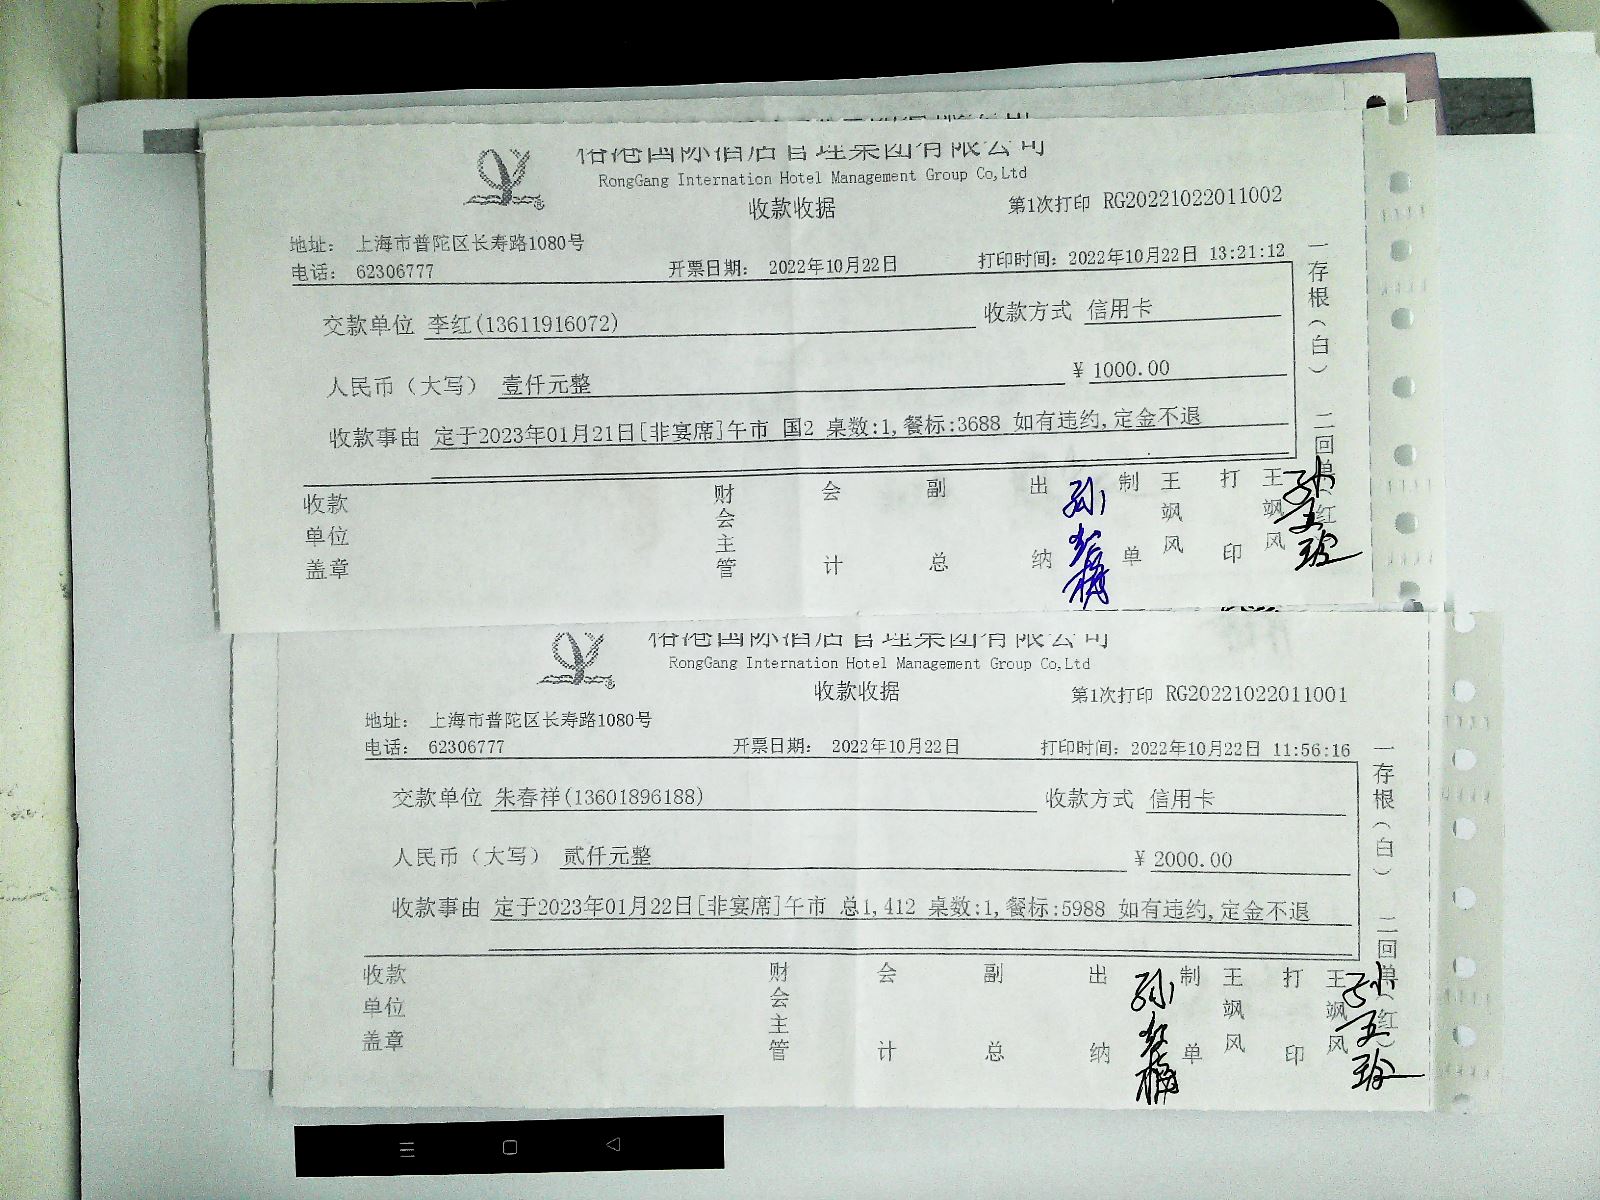 裕港国际酒店管理集团有限公司
RongGang Internation Hotel Management Group Co,Ltd
收款收据
第1次打印 RG20221022011002
地址： 上海市普陀区长寿路1080号
电话： 62306777 开票日期： 2022年10月22日 打印时间：2022年10月22日 13:21:12
交款单位 李红(13611916072) 收款方式 信用卡
人民币（大写） 壹仟元整 ¥ 1000.00
收款事由 定于2023年01月21日[非宴席]午市 国2 桌数:1,餐标:3688 如有违约,定金不退
收款单位盖章 财会主管 会计 副总 出纳 孙红梅 制单 王飒风 打印 王飒风
一存根（白） 二回单（红）
裕港国际酒店管理集团有限公司
RongGang Internation Hotel Management Group Co,Ltd
收款收据
第1次打印 RG20221022011001
地址： 上海市普陀区长寿路1080号
电话： 62306777 开票日期： 2022年10月22日 打印时间：2022年10月22日 11:56:16
交款单位 朱春祥(13601896188) 收款方式 信用卡
人民币（大写） 贰仟元整 ¥ 2000.00
收款事由 定于2023年01月22日[非宴席]午市 总1,412 桌数:1,餐标:5988 如有违约,定金不退
收款单位盖章 财会主管 会计 副总 出纳 孙红梅 制单 王飒风 打印 王飒风
一存根（白） 二回单（红）